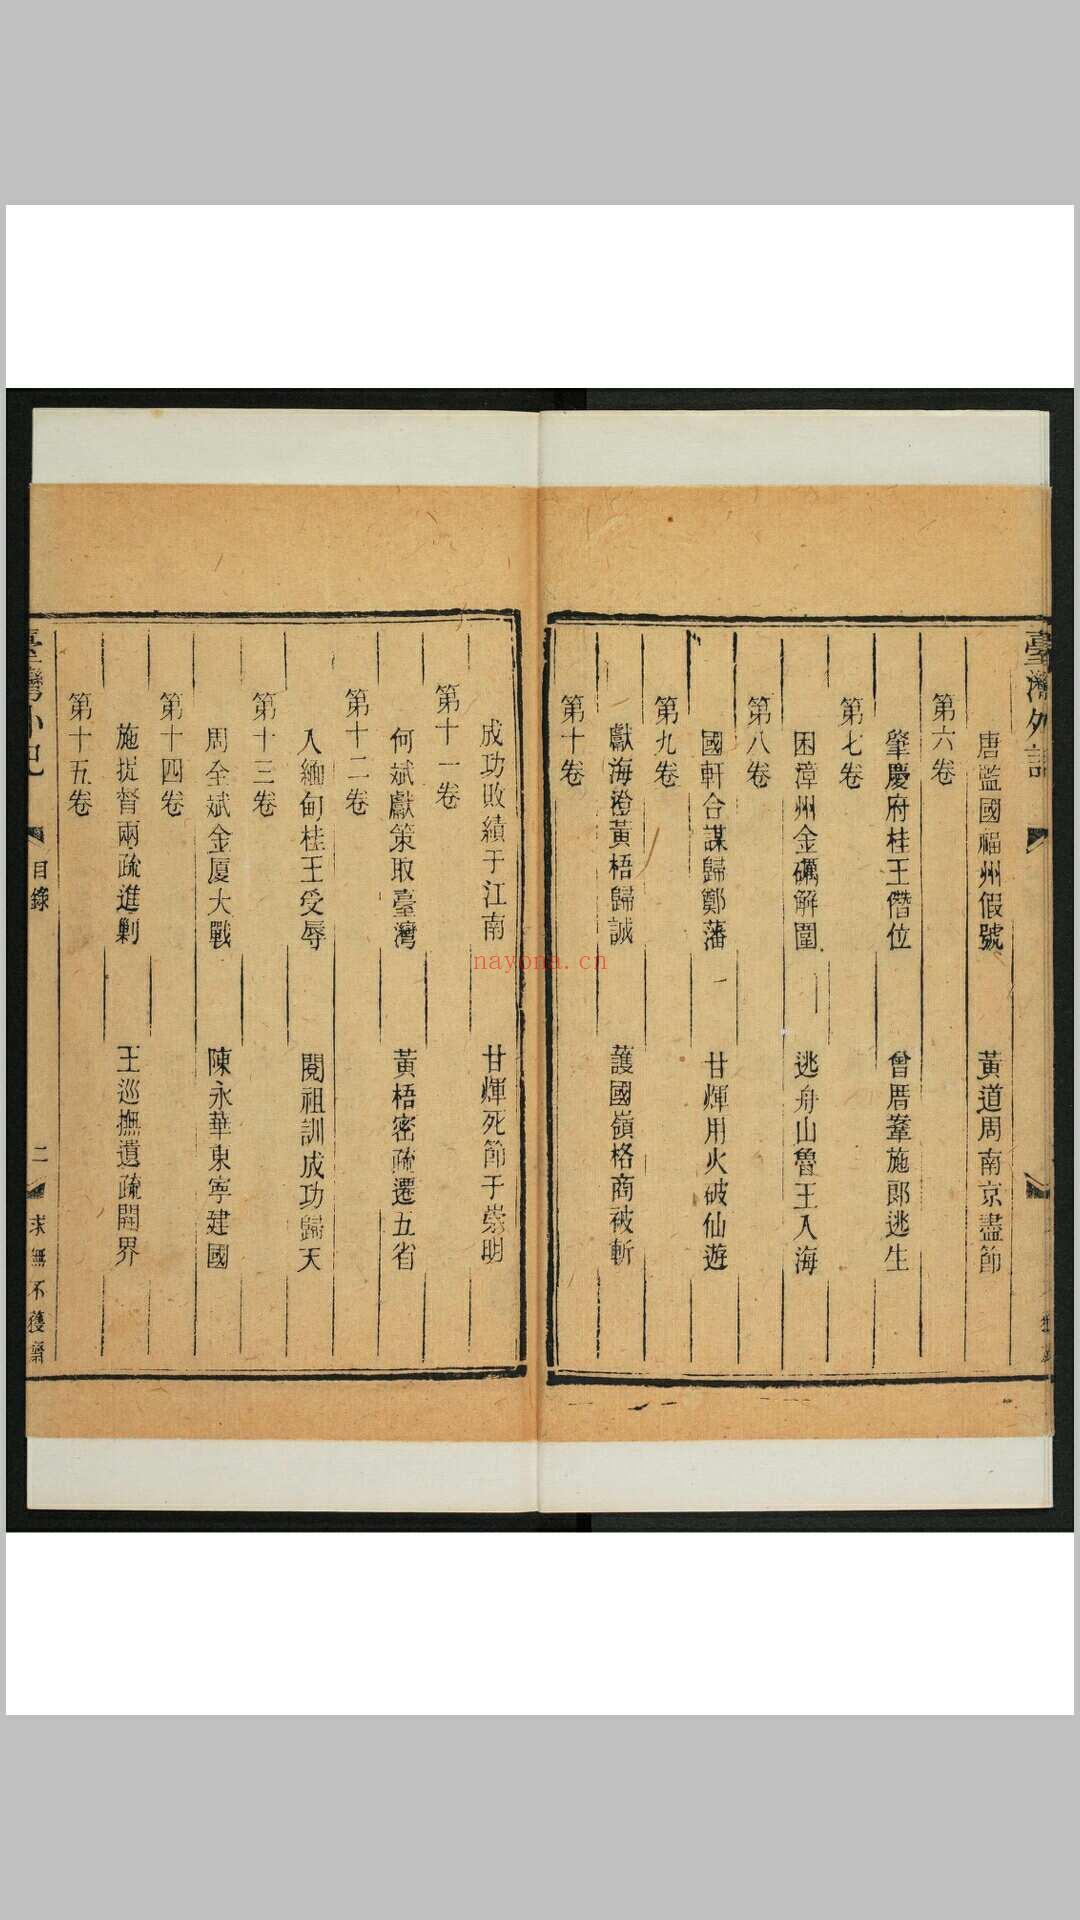 臺灣外記
唐監國福州假號　黃道周南京盡節
第六卷
肇慶府桂王僭位　曾厝塟施郞逃生
第七卷
困漳州金礪解圍　逃舟山魯王入海
第八卷
國軒合謀歸鄭藩　甘煇用火破仙遊
第九卷
獻海澄黃梧歸誠　護國嶺格商被斬
第十卷
成功敗績于江南　甘煇死節于崇明
第十一卷
何斌獻策取臺灣　黃梧密疏遷五省
第十二卷
入緬甸桂王受辱　閱祖訓成功歸天
第十三卷
周全斌金厦大戰　陳永華東寧建國
第十四卷
施提督兩疏進剿　王巡撫遺疏開界
第十五卷
臺灣外記
目錄
二
求無不獲齋
nayona.cn